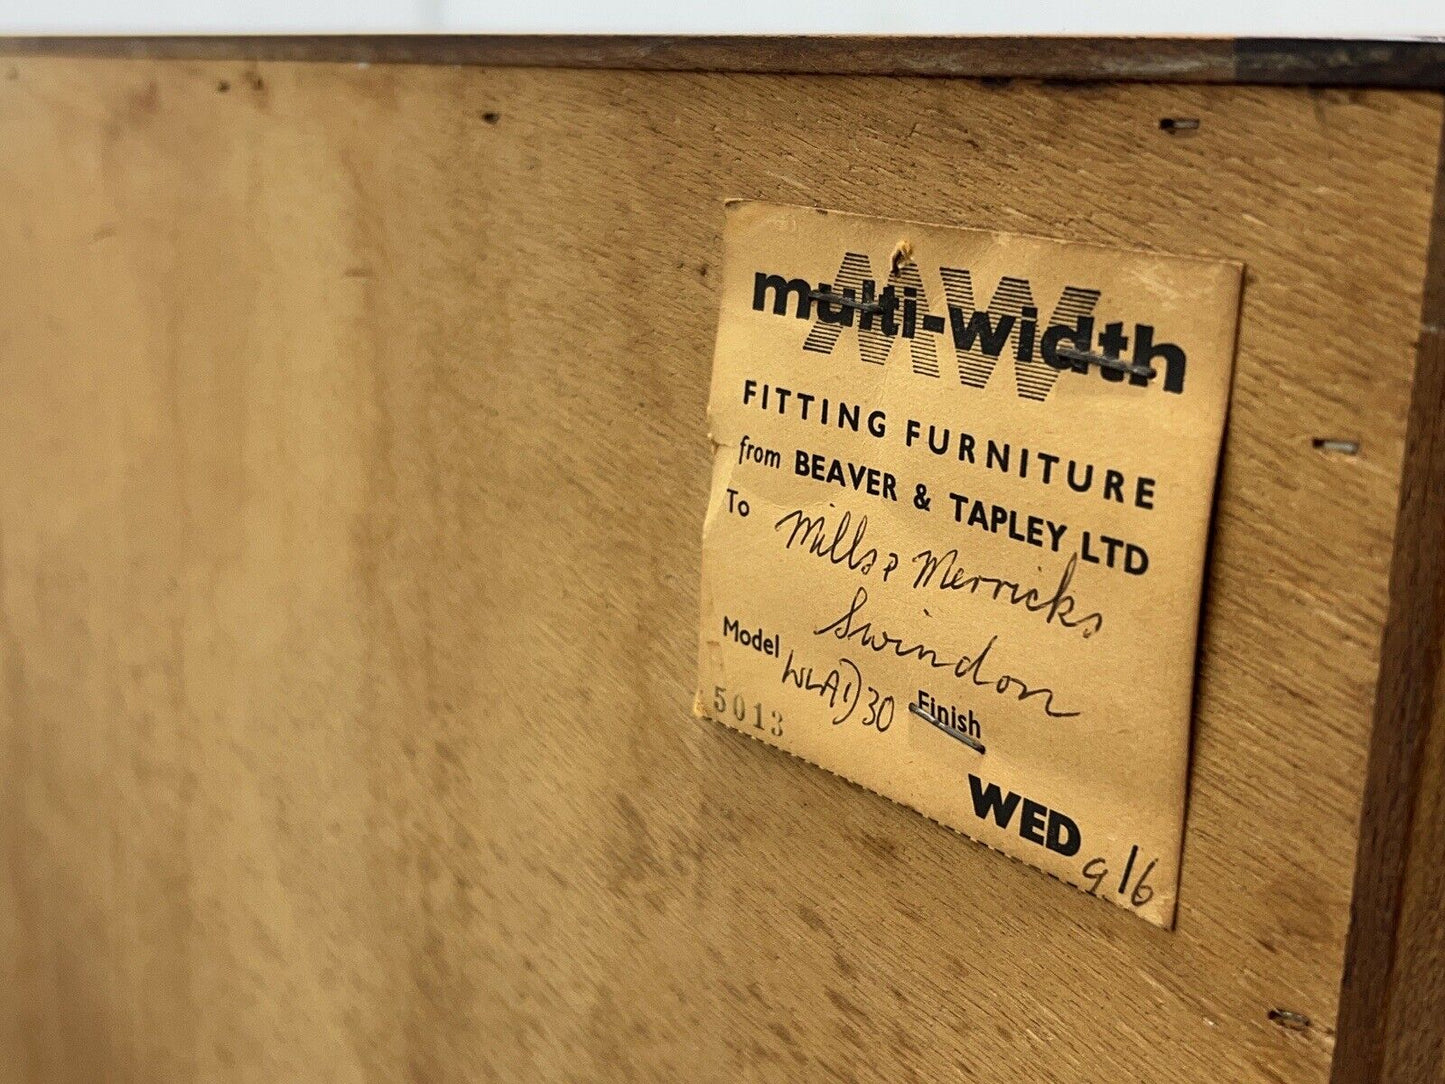 MW
multi-width
FITTING FURNITURE
from BEAVER & TAPLEY LTD
To Mills & Merricks
Swindon
Model WLAD30 Finish
5013
WED 9/6